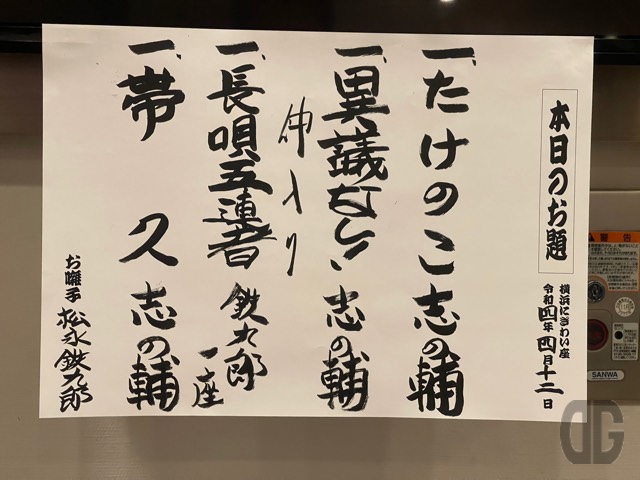 本日のお題
横浜にぎわい座
令和四年四月十二日
一、たけのこ 志の輔
一、異議なし! 志の輔
仲入り
一、長唄五連者 鉄九郎
一座
一、帯久 志の輔
お囃子 松永鉄九郎
警告
SANWA
DG